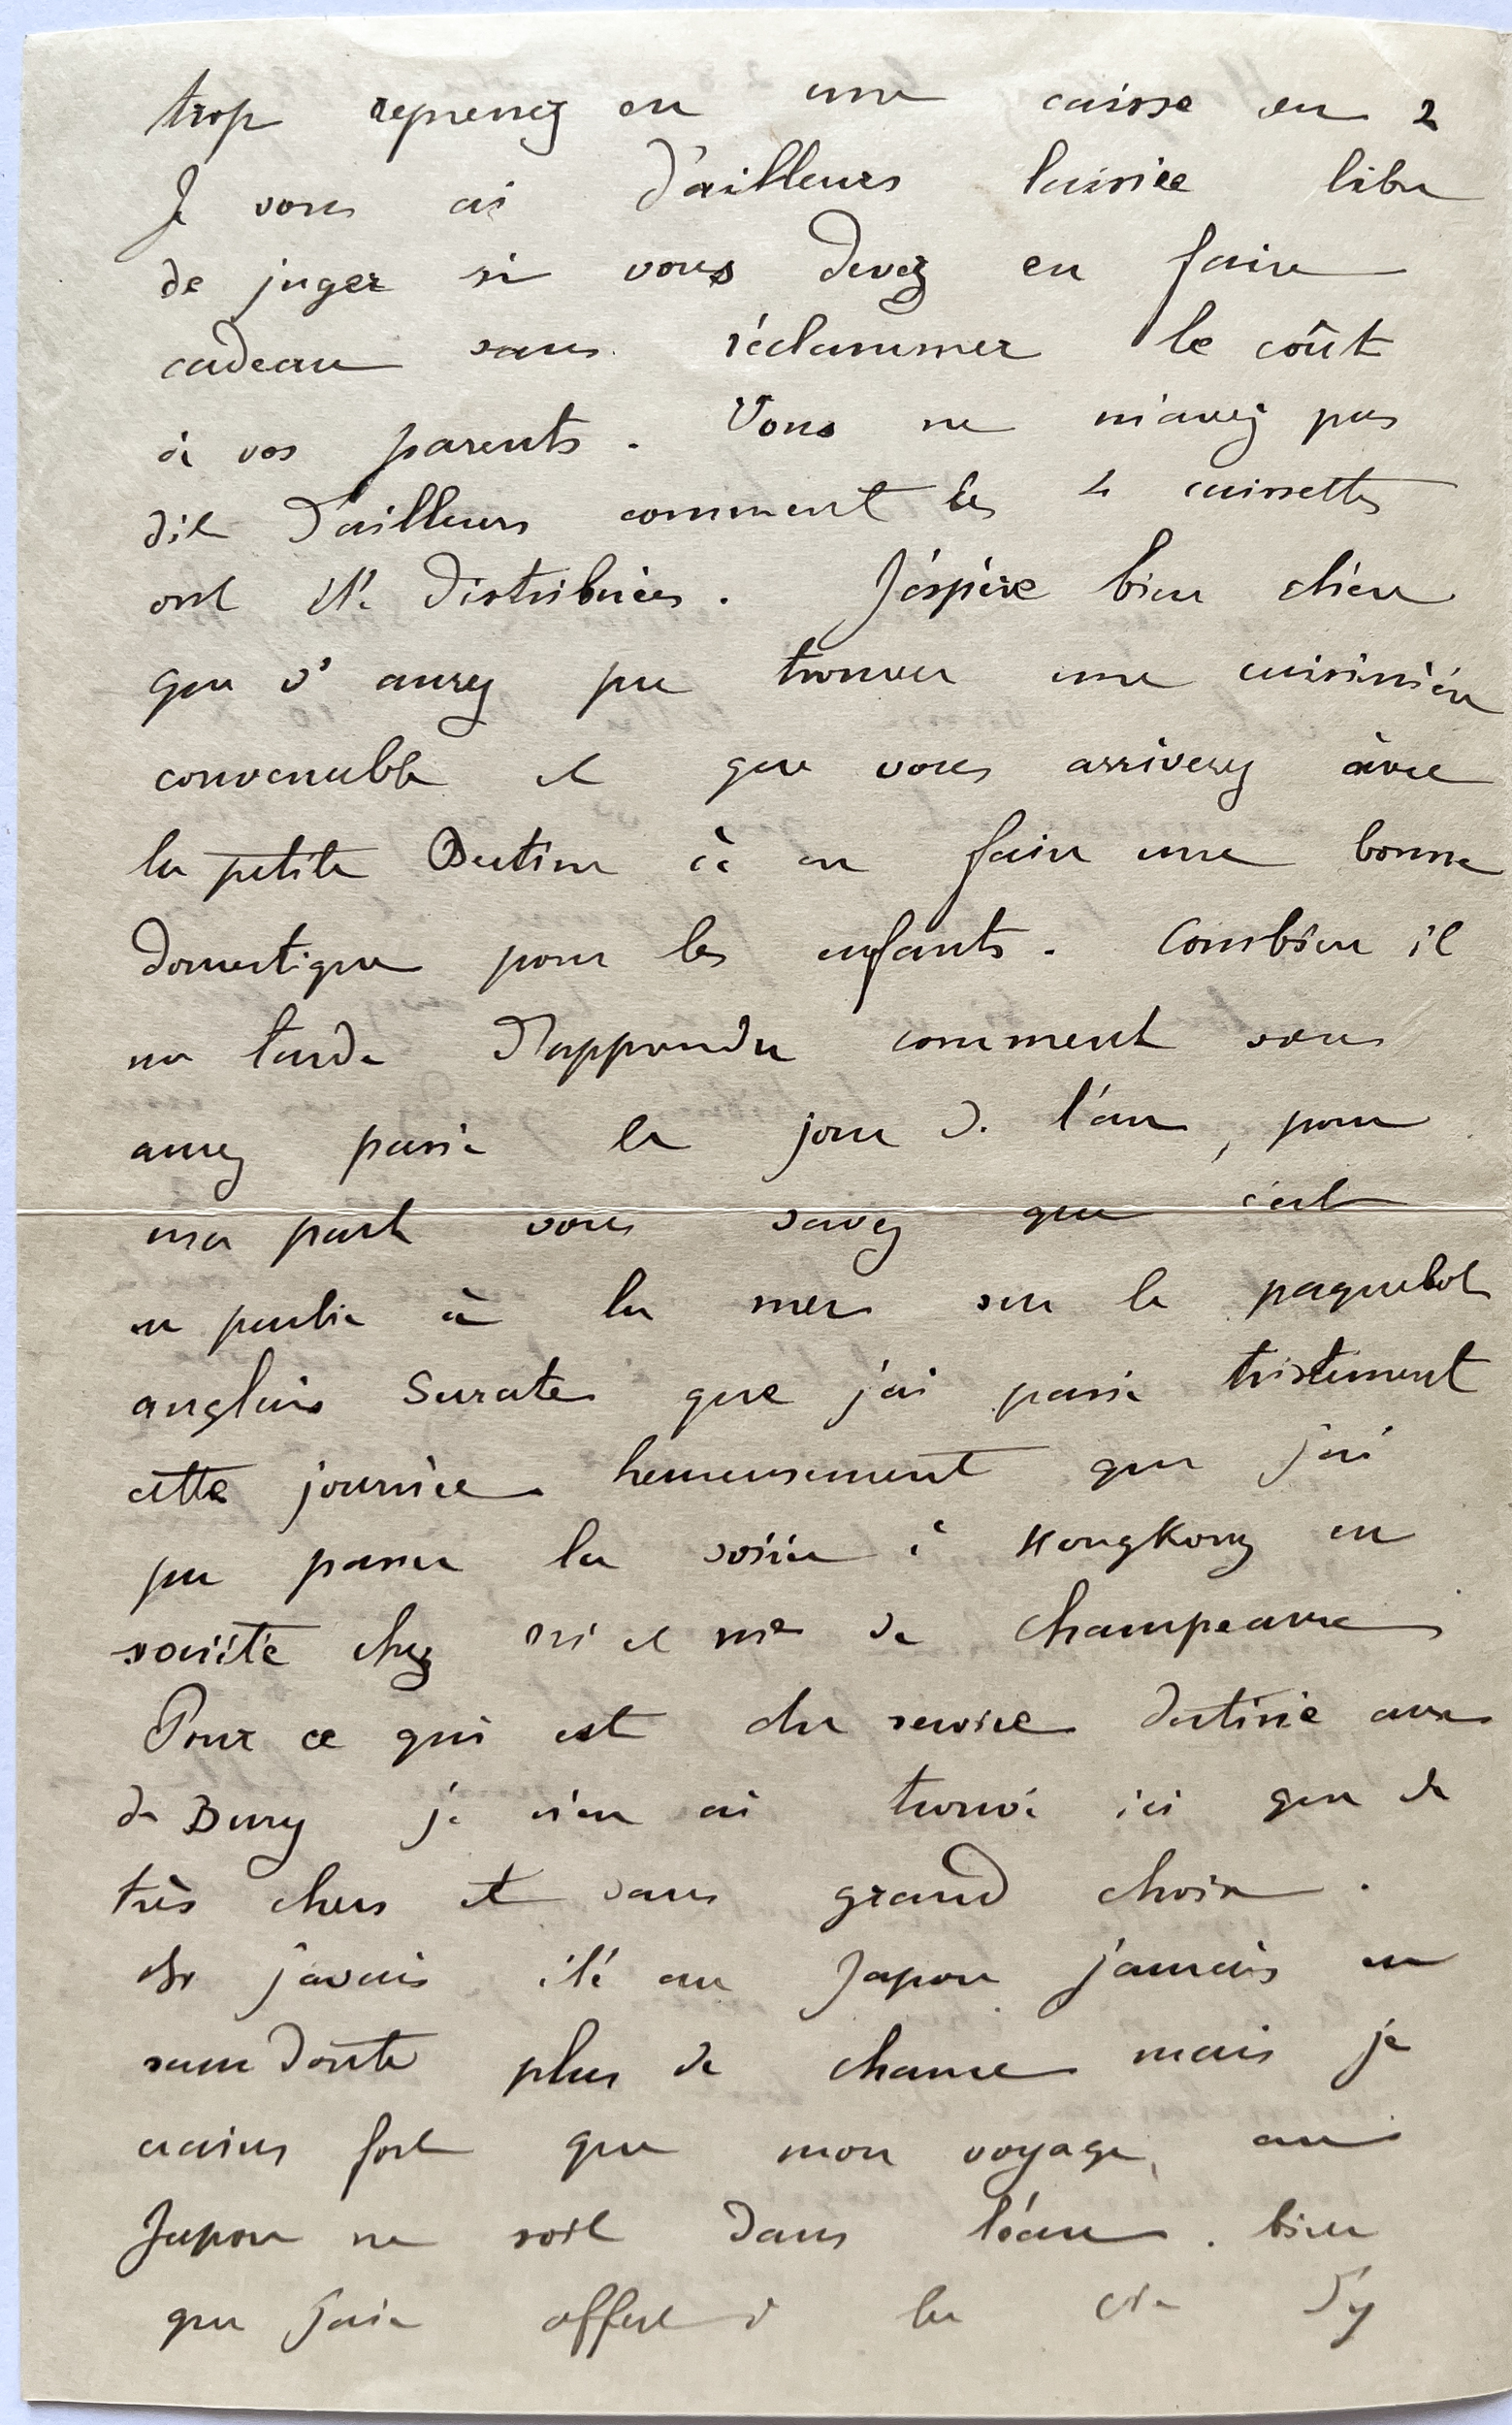 trop reprenez en une caisse ou 2
Je vous ai d'ailleurs laissée libre
de juger si vous devez en faire
cadeau sans réclammer le coût
à vos parents. Vous ne m'avez pas
dit d'ailleurs comment les 2 caissettes
ont été distribuées. J'éspère bien chère
que v' aurez pu trouver une cuisinière
convenable et que vous arriverez avec
la petite à en faire une bonne
domestique pour les enfants. Combien il
me tarde d'apprendre comment vous
aurez passé le jour de l'an, pour
ma part vous savez que c'est
en partie à la mer sur le paquebot
anglais Surate que j'ai passé tristement
cette journée heureusement que j'ai
pu passer la soirée à HongKong en
société chez Mr et Me de Champeaux
Pour ce qui est du service destiné aux
de Bury je n'en ai trouvé ici que de
très chers et sans grand choix.
Si j'avais été au Japon j'aurais eu
sans doute plus de chance mais je
crains fort que mon voyage au
Japon ne soit dans l'éau. bien
que j'aie offert à la Cie d'y